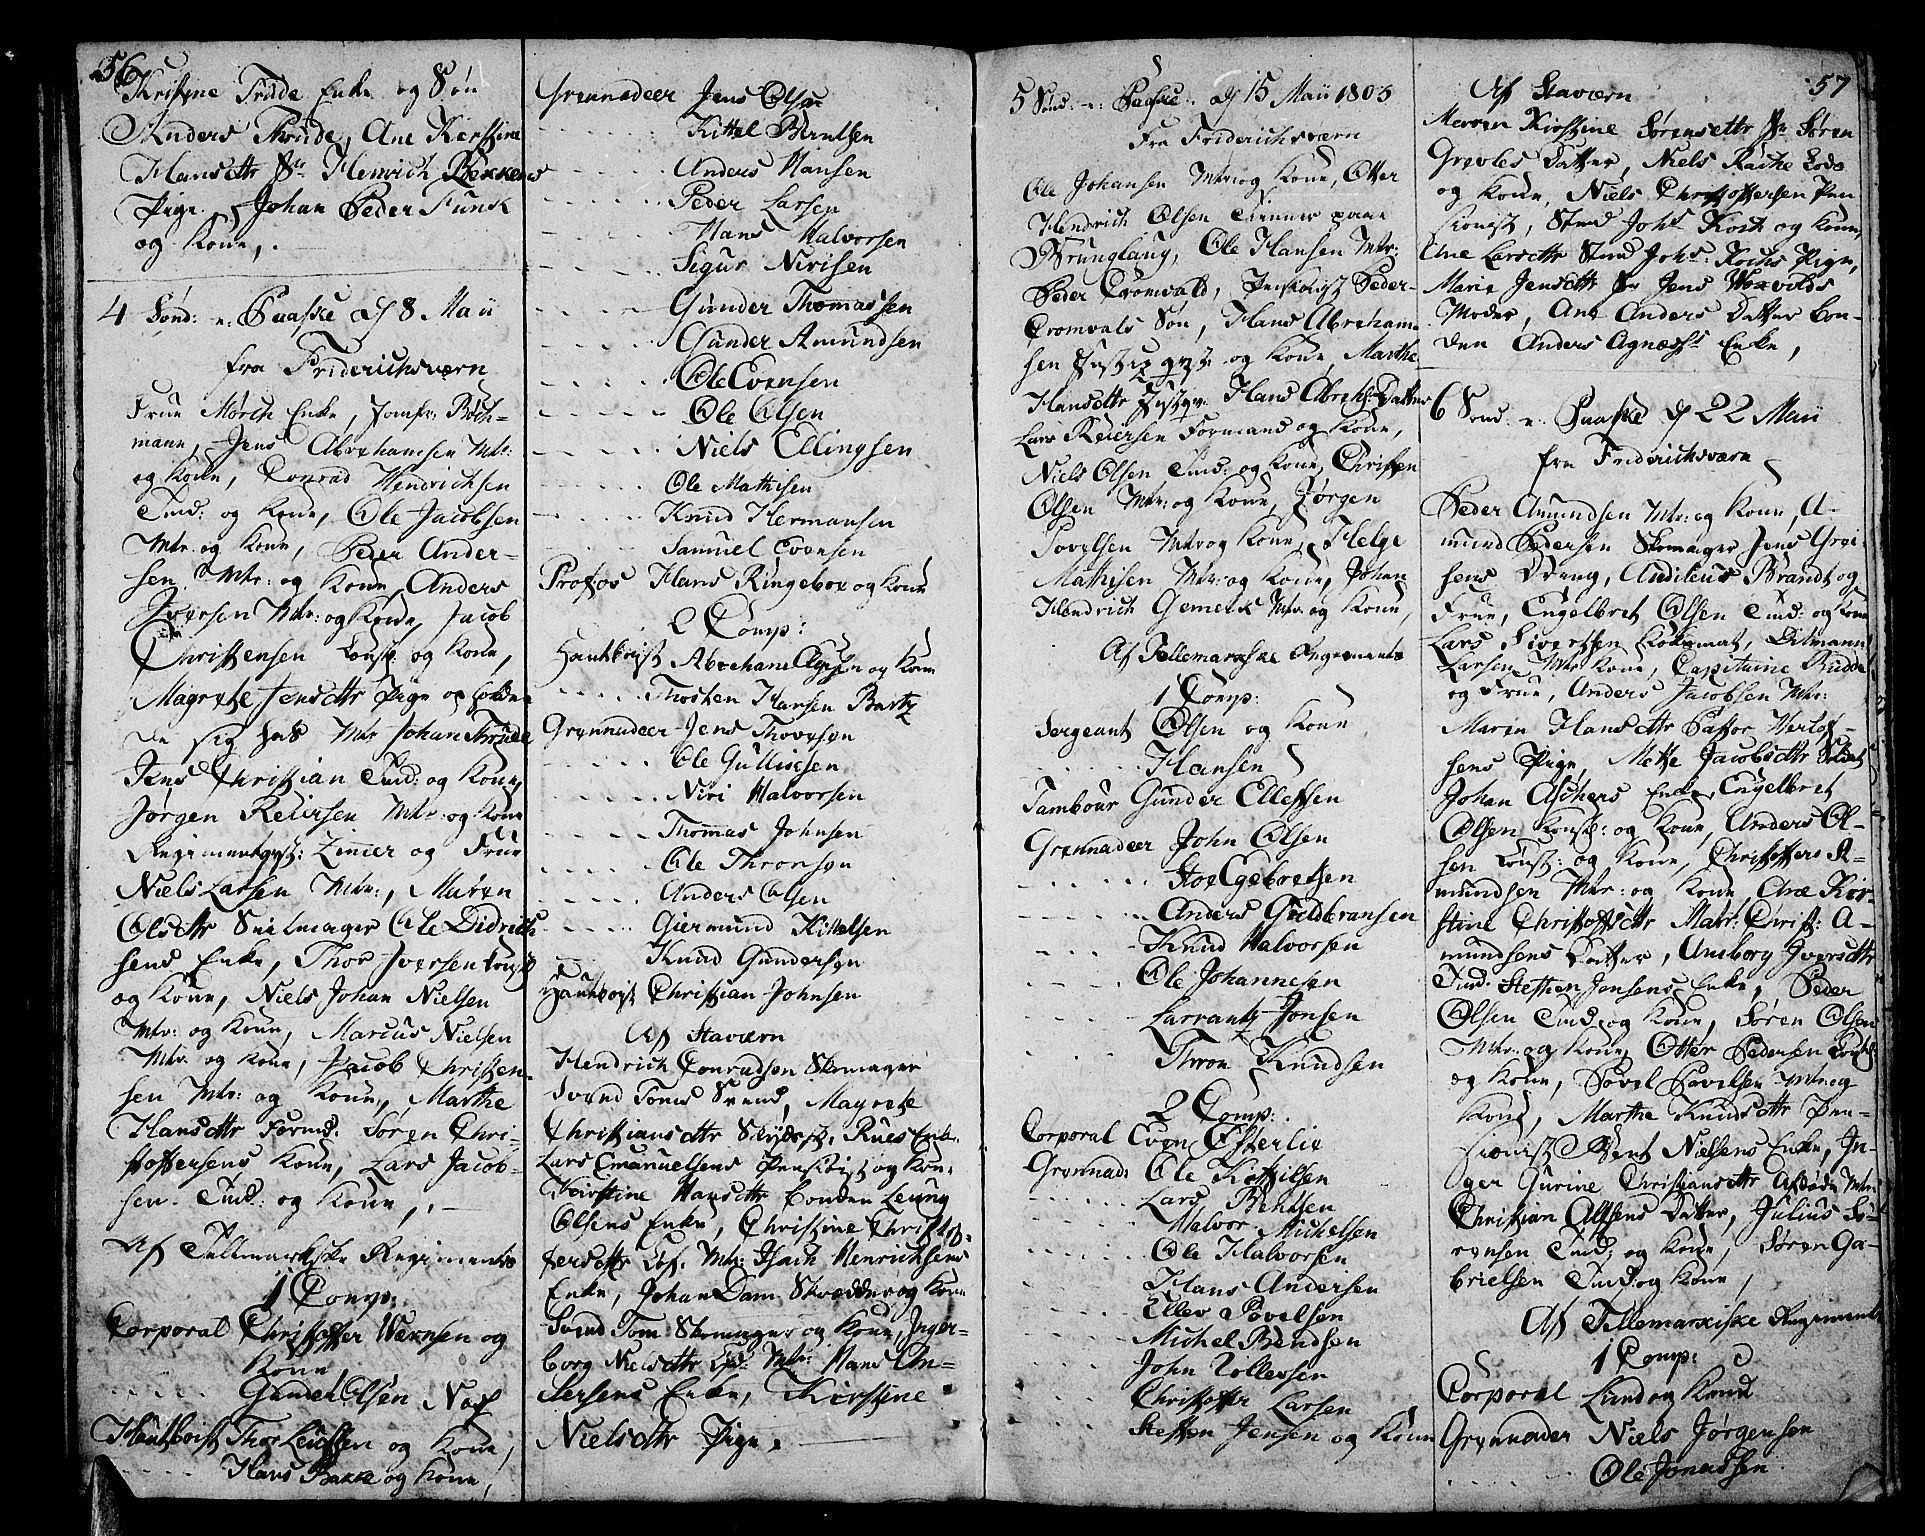 56
Kristine Trude Enke og Søn
Anders Thrude, Ane Kirstine
Hansdttr Sr Henrich Bekkens
Pige, Johan Peder Funk
og Kone,
4 Sønd: e: Paaske d 8 Maii
fra Friderichsværn
Frue Mørch Enke, Jomfr: Boch-
mann, Jens Abrahamsen Mtr:
og Kone, Conrad Hendrichsen
Tmd: og Kone, Ole Jacobsen
Mtr: og Kone, Peder Ander-
sen Mtr: og Kone, Anders
Iversen Mtr: og Kone, Jacob
Christensen Const: og Kone,
Magrete Jensdttr Pige og
sig hos Mtr Johan Thrude
Jens Christian Tmd: og Kone,
Jørgen Reiersen Mtr: og Kone
Regimentqvst: Zimer og Frue
Niels Larsen Mtr:, Maren
Olsdttr Seilmager Ole Didrich
sens Enke, Thor Iversen Const
og Kone, Niels Johan Nielsen
Mtr: og Kone, Marcus Nielsen
Mtr: og Kone, Jacob Christen-
sen Mtr: og Kone, Marthe
Hansdttr Formd: Søren Chri-
stoffersens Kone, Lars Jacob-
sen Tmd: og Kone,
Af Tellemarkske Regimente
1 Comp:
Corporal Christoffer Wærnsen og
Kone
Gunder Olsen Næs
Hautboist Thor Leufsen og Kone,
Hans Bakke og Kone,
Grennadeer Jens Olsen
Kittel Berntsen
Anders Hansen
Peder Larsen
Hans Halvorsen
Sigur Nirisen
Gunder Thomassen
Gunder Amundsen
Ole Evensen
Ole Olsen
Niels Ellingsen
Ole Mathisen
Knud Hermansen
Samuel Evensen
Profos Hans Ringeboe og Kone
2 Comp:
Hautboist Abraham Olsen og Kone
Thosten Hansen Bertz
Grennadeer Jens Thovsen
Ole Gullicsen
Niri Halvorsen
Thomas Johnsen
Ole Thronsen
Anders Olsen
Giermund Kittelsen
Knud Gundersen
Hautboist Christian Johnsen
Af Staværn
Hendrich Conradsen Skomager
Svend Toms Svend, Magrete
Christiansdttr Rues Enke
Lars Emanuelsens Pensionist og Kone
Kirstine Hansdttr Bonden Leung
Olsens Enke, Christine Christof-
fersdttr Løs: Mtr: Isach Henrichsens
Enke, Johan Dam Skredder og Kone
Svend Tom Skomager og Kone, Inger-
borg Nielsdttr Løs: Mtr: Hans An-
dersens Enke, Kirstine
Nielsdttr Pige,
5 Sønd: e: Paaske d 15 Maii 1803
Fra Friderichsværn
Ole Johansen Mtr: og Kone, Otter
Hendrich Olsen Tienner paa
Brunglang, Ole Hansen Mtr:
Peder Cromvald, Peder
Cromvals Søn, Hans Abraham
sen og Kone, Marthe
Hansdttr Hans Abrah: Datter
Lars Reiersen Formand og Kone,
Niels Olsen Tmd: og Kone, Christen
Olsen Mtr: og Kone, Jørgen
Povelsen Mtr og Kone, Helge
Mathisen Mtr: og Kone, Johan
Hendrich Gemelk Mtr: og Kone,
Af Tellemarkske Regimente
1 Comp:
Sergeant Olsen og Kone
Hansen
Tambour Gunder Ellefsen
Grennadeer John Olsen
Stoe Egebretsen
Anders Guldbransen
Knud Halvorsen
Ole Johannesen
Larrantz Jonsen
Thron Knudsen
2 Comp:
Corporal Even Efterlie
Grennad: Ole Kettilsen
Lars Bentsen
Halvor Michelsen
Ole Halvorsen
Hans Andersen
Ellev Povelsen
Michel Bendsen
John Tollevsen
Christoffer Larsen
Steffen Jensen og Kone
57
Af Staværn
Maren Kirstine Sørensdttr Sr Søren
Greoles Datter, Niels Rache Lods
og Kone, Niels Christoffersen Pen
sionist, Stmd Johs Koch og Kone,
Ane Larsdttr Stmd Johs: Kochs Pige,
Marie Jensdttr Sr Jens Woxvolds
Moder, Ane Anders Datter Bon-
den Anders Agness Enke,
6 Sønd: e: Paaske d 22 Maii
fra Friderichsværn
Peder Amundsen Mtr: og Kone, A-
mund Pedersen Skomager Jens Grei-
sens Dreng, Andreas Brandt og
Frue, Engelbret Olsen Tmd: og Kone
Lars Sivertsen Kokkemat, Ditmann
Larsen Mtr Kone, Capitaine Budde
og Frue, Anders Jacobsen Mtr:
Maren Hansdttr Pastor Hertof-
sens Pige, Mette Jacobsdttr Soldat
Johan Aschens Enke, Engelbret
Olsen Const: og Kone, Anders Ol-
sen Const: og Kone, Christoffers A-
mundsen Mtr: og Kone, Ane Kir-
stine Christoffsdttr Matr: Christ: A-
mundsens Datter, Ansborg Iversdttr
Tmd. Steffen Jensens Enke, Peder
Olsen Tmd: og Kone, Søren Olsen
Mtr: og Kone, Otter Pedersen Const
og Kone, Povel Pavelsen Mtr: og
Kone, Marthe Knudsdttr Pen-
sionist Bent Nielsens Enke, In-
ger Gurine Christiansdttr Afdøde Mtr:
Christian Olsens Datter, Julius Sø-
rensen Tmd: og Kone, Søren Ga-
brielsen Tmd: og Kone,
Af Tellemarkiske Regimente
1 Comp:
Corporal Lund og Kone
Grennadeer Niels Jørgensen
Ole Jonassen